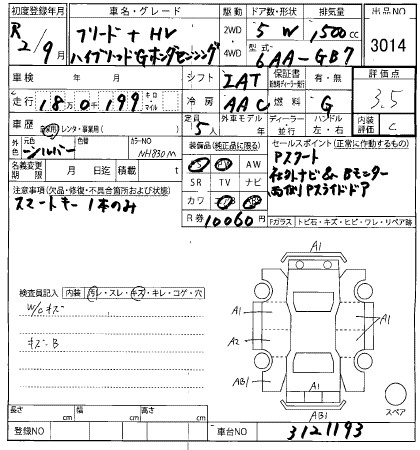 初度登録年月 車名・グレード 駆動 ドア数・形状 排気量 出品NO
R 2/9月 フリード + HV 2WD 5 W 1500cc 3014
ハイブリッドGホンダセンシング 4WD 型式 6AA-GB7
車検 年 月 シフト IAT 保証書 有・無 評価点
走行 18万0千199 キロ マイル 冷房 AAC 燃料 G 3.5
車歴 自家用 レンタ・事業用( ) 定員 5人 外車モデル 年 ディーラー 並行 ハンドル 左・右 内装評価 C
外色 元色 シルバー 色替 カラーNO NH830M 装備品(純正品に限る) セールスポイント(正常に動作するもの)
名義変更期限 月 日迄 積載 t AW Pスタート
SR TV ナビ 社外ナビ&Bモニター
注意事項(欠品・修復・不具合箇所および状態) カワ 両側PスライドドA
スマートキー1本のみ R券 10060円
Fガラス トビ石・キズ・ヒビ・ワレ・リペア跡
A1
検査員記入 内装 汚レ・スレ・キズ・キレ・コゲ・穴
W/Oキズ A1 A1
キズ・B A2
AB1 A1
スペア
長さ cm 幅 cm 高さ cm AB1
登録NO 車台NO 3121193